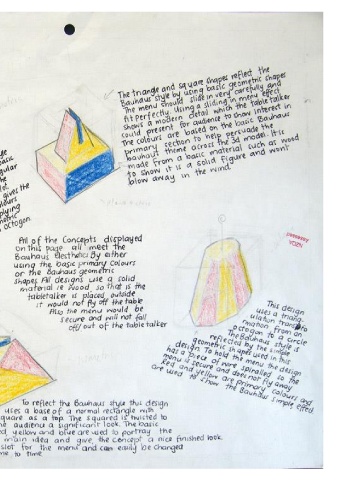 The triangle and square shapes reflect the
Bauhaus style by using basic geometric shapes
The menu should slide in very carefully and
fit perfectly. Using a sliding in menu effect
shows a modern detail which the table talker
could present for audience to show interest in
The colours are based on the basic Bauhaus
primary section to help persuade the
bauhaus theme across the 3d model. It is
made from a basic material such as wood
to show it is a solid figure and wont
blow away in the wind
basic
gular
the
gives the
colours
plying
metric
octogon
All of the Concepts displayed
on this page all meet the
Bauhaus Aesthetics By either
using the basic primary Colours
or the Bauhaus geometric
shapes. All designs use a solid
material ie Wood so that is the
tabletalker is placed outside
it would not fly off the table
Also the menu would be
secure and will not fall
off/ out of the table talker
This design
uses a triang
ulation transfo
rmation from an
octogon to a circle
The Bauhaus style is
reflected by the simple
geometric shapes used in this
design. To hold the menu the design
has a piece of wire spiralled so the
menu is secure and does not fly away
Red and yellow are Primary colours and
are used to show the Bauhaus simple effect
To reflect the Bauhaus style this design
uses a base of a normal rectangle with
square as a top. The squared is twisted to
the audience a significant look. The basic
d yellow and blue are used to portray the
main idea and give the concept a nice finished look.
slot for the menu and can easily be changed
me to time